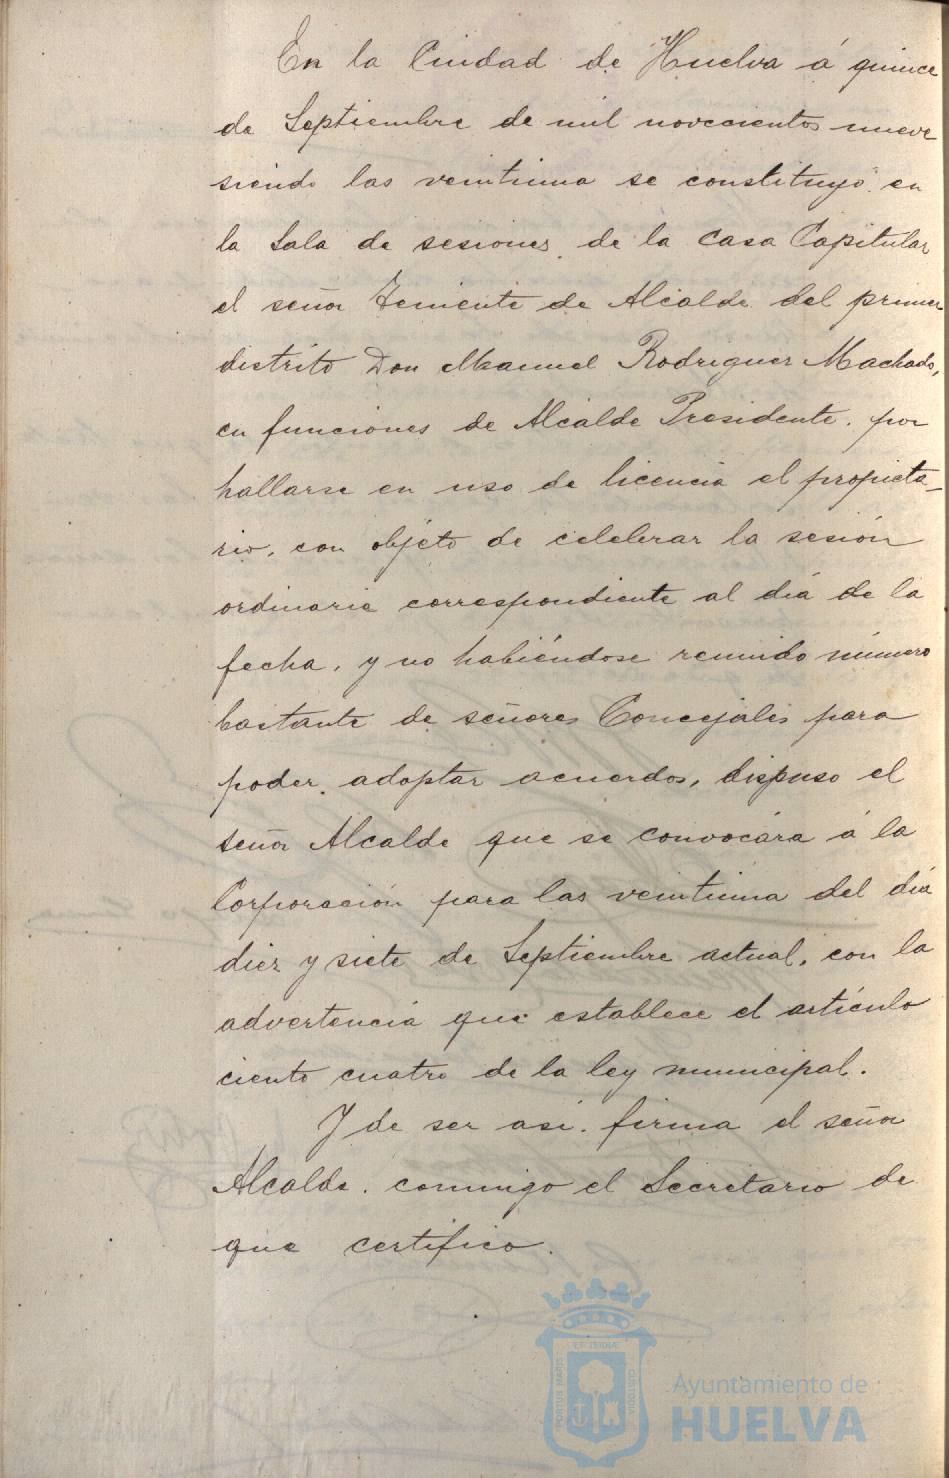 En la Ciudad de Huelva á quince
de Septiembre de mil novecientos nueve
siendo las veintiuna se constituyó en
la Sala de sesiones de la Casa Capitular
el señor Teniente de Alcalde del primer
distrito Don Manuel Rodriguez Machado,
en funciones de Alcalde Presidente, por
hallarse en uso de licencia el propieta-
rio, con objéto de celebrar la sesión
ordinaria correspondiente al día de la
fecha, y no habiéndose reunido número
bastante de señores Concejales para
poder adoptar acuerdos, dispuso el
señor Alcalde que se convocára á la
Corporación para las veintiuna del día
diez y siete de Septiembre actual, con la
advertencia que establece el artículo
ciento cuatro de la ley municipal.
Y de ser asi, firma el señor
Alcalde, conmigo el Secretario de
que certifico.
PORTUS MARIS
ET TERRÆ
CUSTODIA
Ayuntamiento de
HUELVA